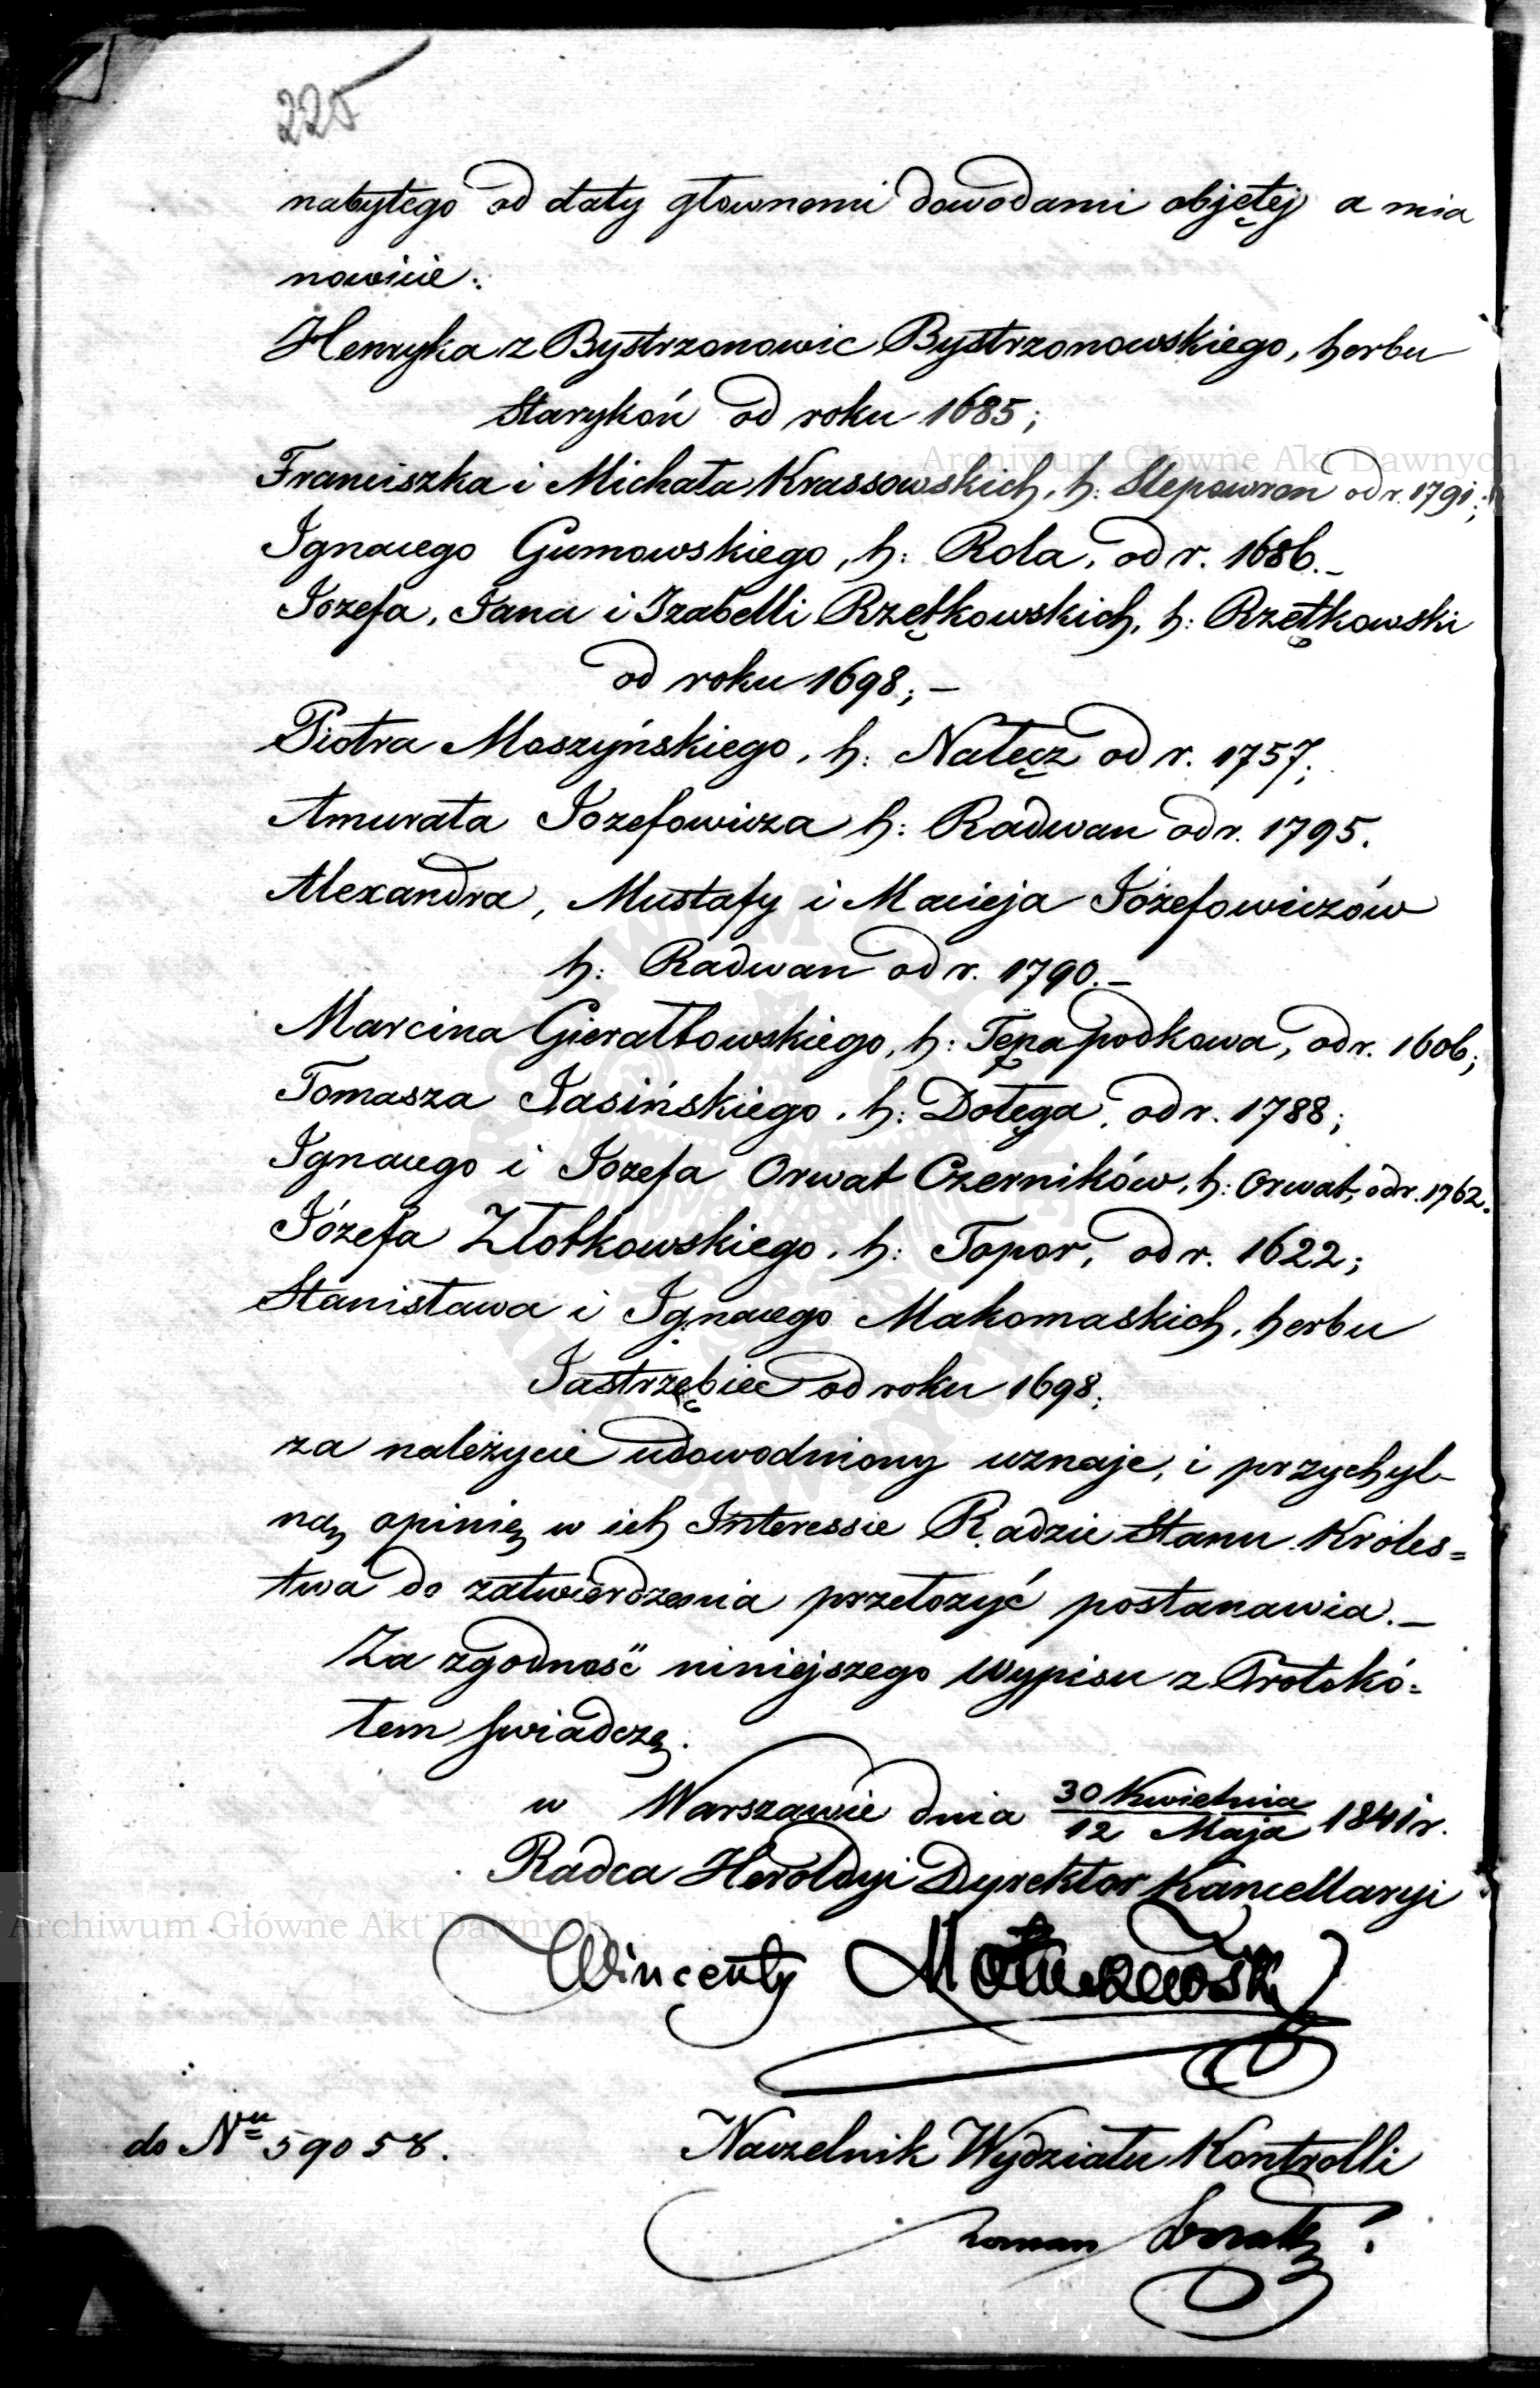 225
nabytego od daty głownemi dowodami objętej a mia
nowicie:
Henryka z Bystrzonowic Bystrzonowskiego, herbu
Starykoń od roku 1685;
Archiwum Główne Akt Dawnych
Franciszka i Michała Krassowskich, h: Slepowron od r. 1791;
Ignacego Gumowskiego, h: Rola, od r. 1686.—
Jozefa, Jana i Izabelli Rzętkowskich, h: Rzętkowski
od roku 1698;—
Piotra Moszyńskiego, h: Nałęcz od r. 1757;
Amurata Jozefowicza h: Radwan od r. 1795.
Alexandra, Mustafy i Macieja Józefowiczów
h: Radwan od r. 1790.—
Marcina Gierałtowskiego, h: Tępa podkowa, od r. 1606;
Tomasza Jasińskiego, h: Dołęga, od r. 1788;
Ignacego i Jozefa Orwat Czerników, h: Orwat, od r. 1762.
Józefa Złotkowskiego, h: Topor, od r. 1622;
Stanisława i Ignacego Makomaskich, herbu
Jastrzębiec od roku 1698;
za należycie udowodniony uznaje, i przychyl-
ną opinię w ich Interessie Radzie Stanu Króles=
twa do zatwierdzenia przełożyć postanawia.—
Za zgodność niniejszego Wypisu z Protokó=
łem świadczę.
w Warszawie dnia 30 Kwietnia / 12 Maja 1841 r.
Radca Heroldyi Dyrektor Kancellaryi
Archiwum Główne Akt Dawnych
Wincenty
do Nru 59058.
Naczelnik Wydziału Kontrolli
Roman